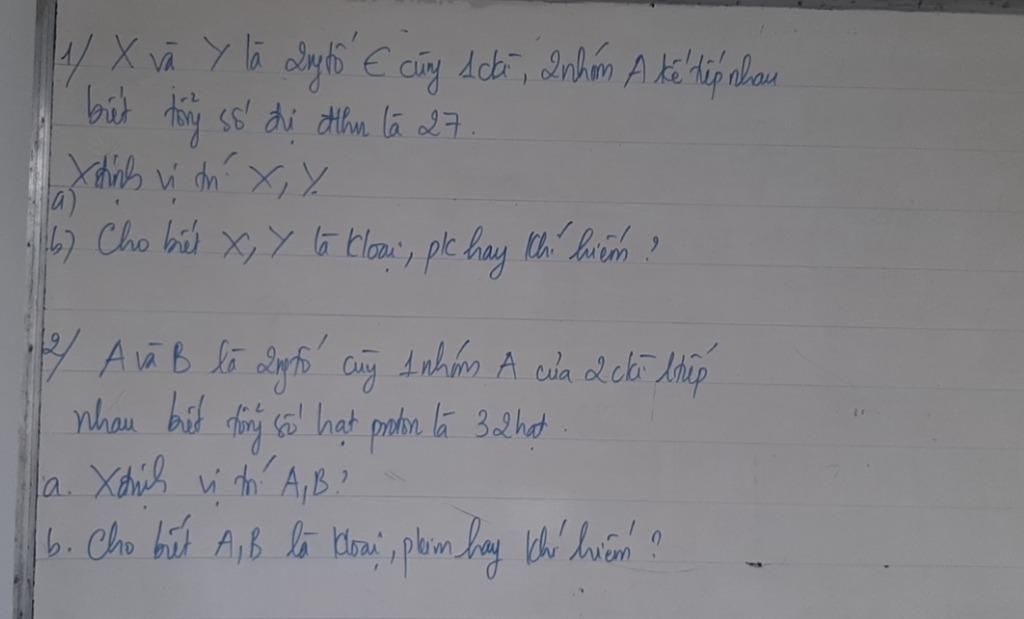 1/ X và Y là 2ngtố € cùng 1ckì, 2nhóm A kế tiếp nhau
biết tổng số đvị đthn là 27.
Xđịnh vị trí X, Y.
a)
b) Cho biết X, Y là kloại, pk hay khí hiếm?
2/ A và B là 2ngtố cùg 1nhóm A của 2ckì ltiếp
nhau biết tổng số hạt proton là 32hạt.
a. Xđịnh vị trí A, B?
b. Cho biết A, B là kloại, pkim hay khí hiếm?